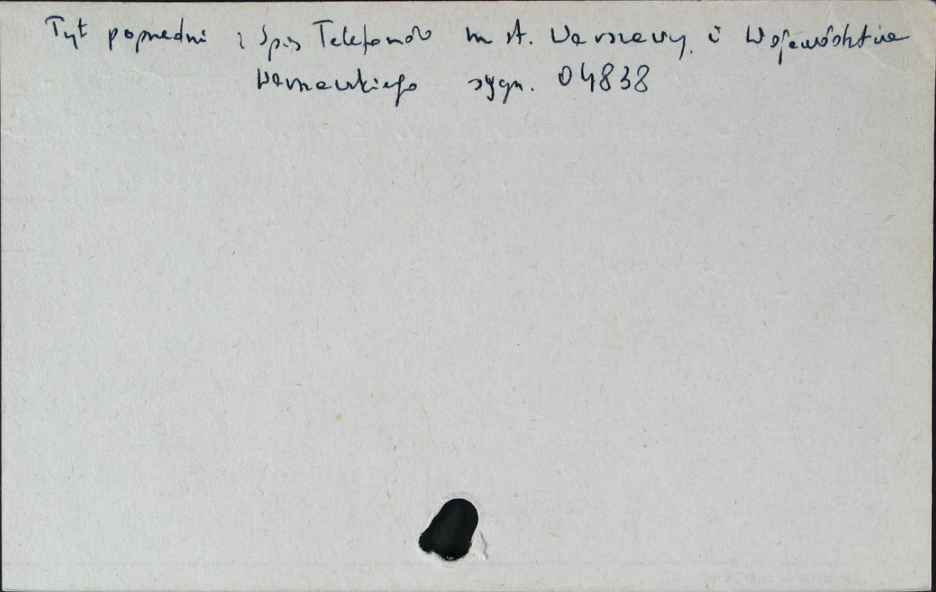 Tyt poprzedni : Spis Telefonów m st. Warszawy i Województwa
Warszawskiego sygn. 04838